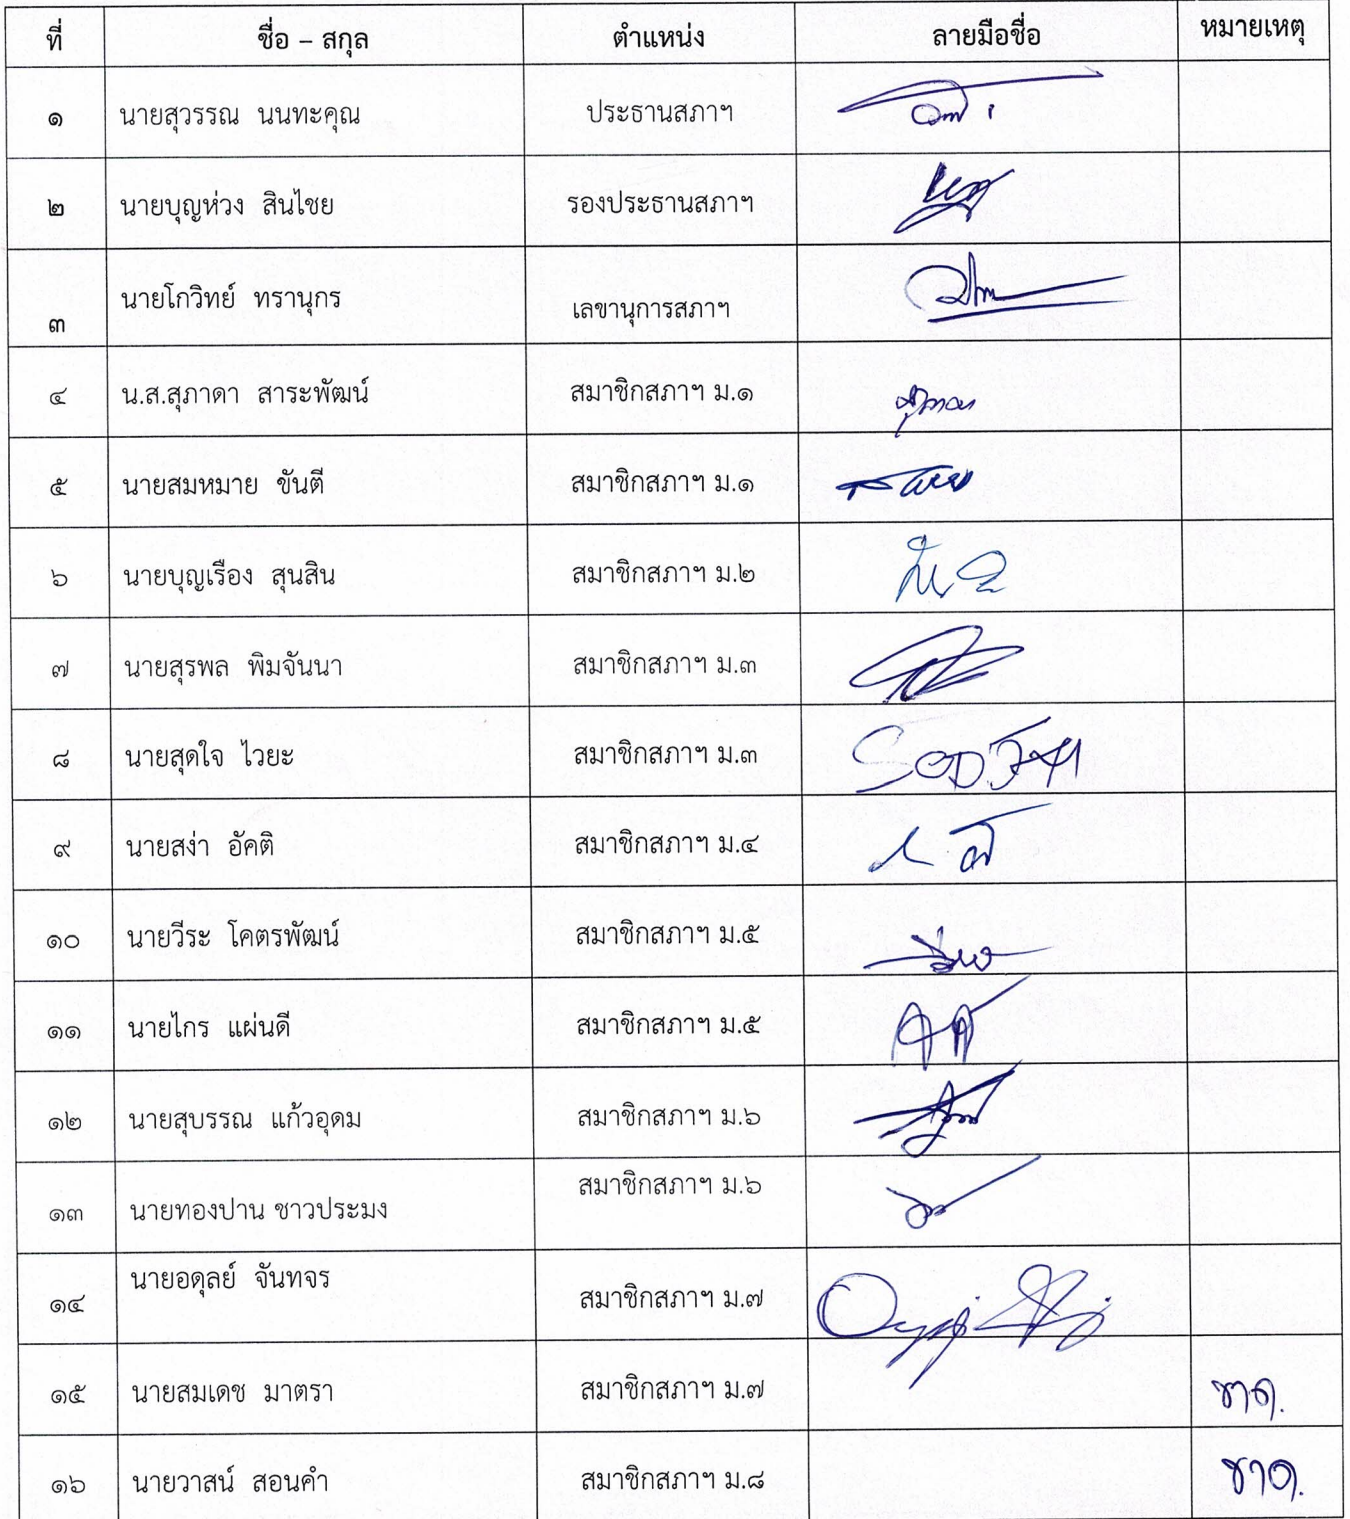 ที่ ชื่อ – สกุล ตำแหน่ง ลายมือชื่อ หมายเหตุ
๑ นายสุวรรณ นนทะคุณ ประธานสภาฯ
๒ นายบุญห่วง สินไชย รองประธานสภาฯ
๓ นายโกวิทย์ ทรานุกร เลขานุการสภาฯ
๔ น.ส.สุภาดา สาระพัฒน์ สมาชิกสภาฯ ม.๑
๕ นายสมหมาย ขันตี สมาชิกสภาฯ ม.๑
๖ นายบุญเรือง สุนสิน สมาชิกสภาฯ ม.๒
๗ นายสุรพล พิมจันนา สมาชิกสภาฯ ม.๓
๘ นายสุดใจ ไวยะ สมาชิกสภาฯ ม.๓
๙ นายสง่า อัคติ สมาชิกสภาฯ ม.๔
๑๐ นายวีระ โคตรพัฒน์ สมาชิกสภาฯ ม.๕
๑๑ นายไกร แผ่นดี สมาชิกสภาฯ ม.๕
๑๒ นายสุบรรณ แก้วอุดม สมาชิกสภาฯ ม.๖
๑๓ นายทองปาน ชาวประมง สมาชิกสภาฯ ม.๖
๑๔ นายอดุลย์ จันทจร สมาชิกสภาฯ ม.๗
๑๕ นายสมเดช มาตรา สมาชิกสภาฯ ม.๗ ขาด.
๑๖ นายวาสน์ สอนคำ สมาชิกสภาฯ ม.๘ ขาด.